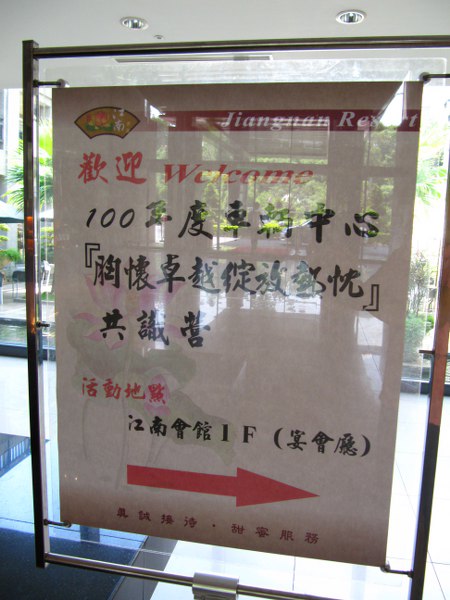 江南
Jiangnan Resort
歡迎 Welcome
100年度車輛中心
『胸懷卓越綻放熱忱』
共識營
活動地點
江南會館1F(宴會廳)
真誠接待·甜蜜服務